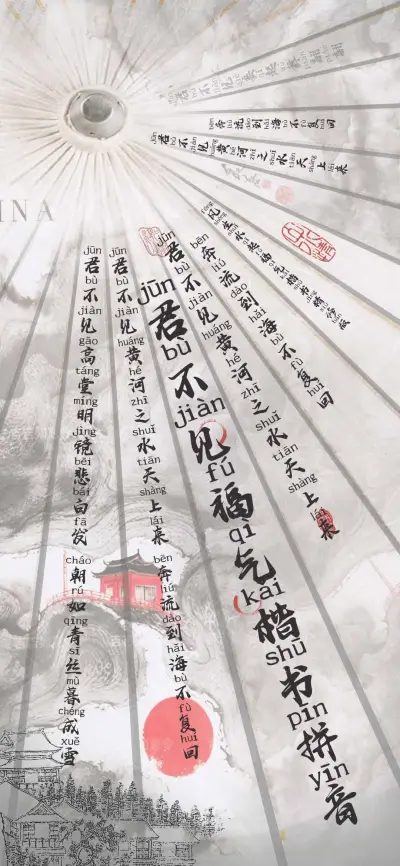 INA
bēn 奔 liú 流 dào 到 hǎi 海 bù 不 fù 复 huí 回
jūn 君 bù 不 jiàn 见 huáng 黄 hé 河 zhī 之 shuǐ 水 tiān 天 shàng 上 lái 来
jūn 君 bù 不 jiàn 见 gāo 高 táng 堂 míng 明 jìng 镜 bēi 悲 bái 白 fā 发
cháo 朝 rú 如 qīng 青 sī 丝 mù 暮 chéng 成 xuě 雪
jūn 君 bù 不 jiàn 见 huáng 黄 hé 河 zhī 之 shuǐ 水 tiān 天 shàng 上 lái 来
bēn 奔 liú 流 dào 到 hǎi 海 bù 不 fù 复 huí 回
jūn 君 bù 不 jiàn 见 fú 福 qì 气 kǎi 楷 shū 书 pīn 拼 yīn 音
jūn 君 bù 不 jiàn 见 huáng 黄 hé 河 zhī 之 shuǐ 水 tiān 天 shàng 上 lái 来
bēn 奔 liú 流 dào 到 hǎi 海 bù 不 fù 复 huí 回